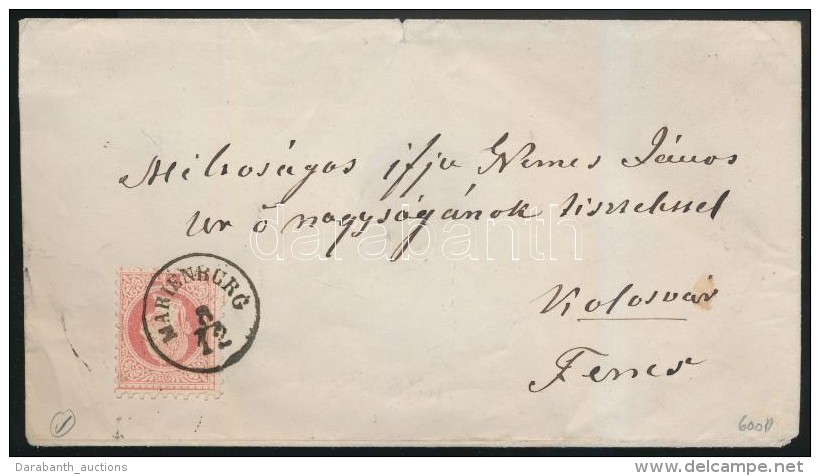 Méltóságos ifju Nemes János
Ur ő nagyságának tisztelettel
Kolosvár
Fenes
MARIENBURG
8/12
darabanth
600P
Darabanth_auctions
delcampe.net